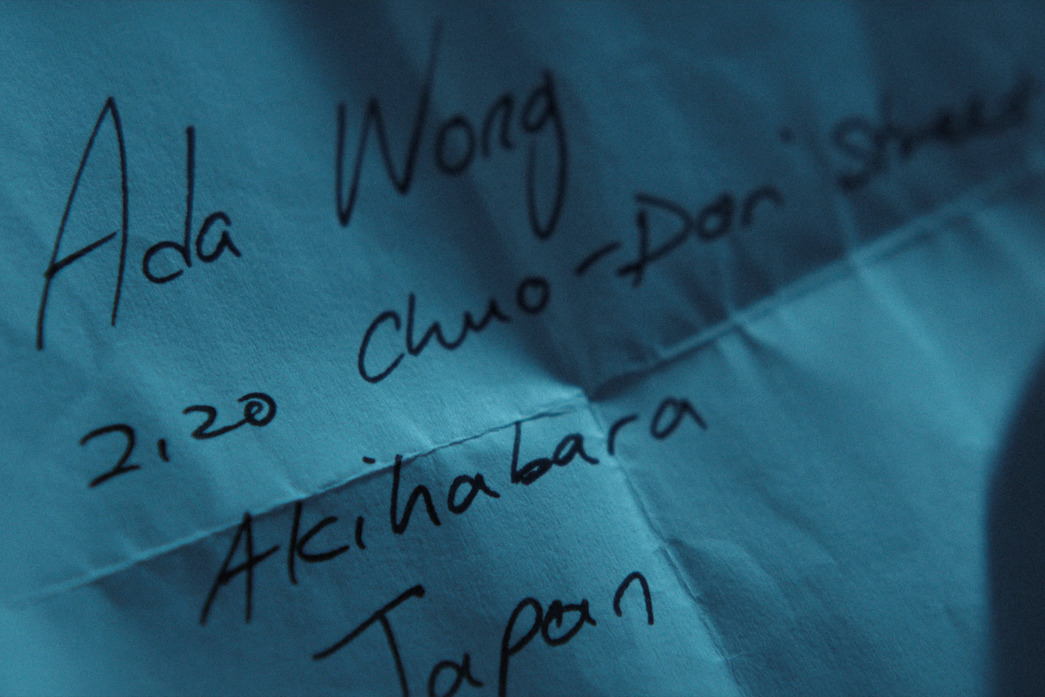 Ada Wong
2,20 Chuo-Dori Street
Akihabara
Japan